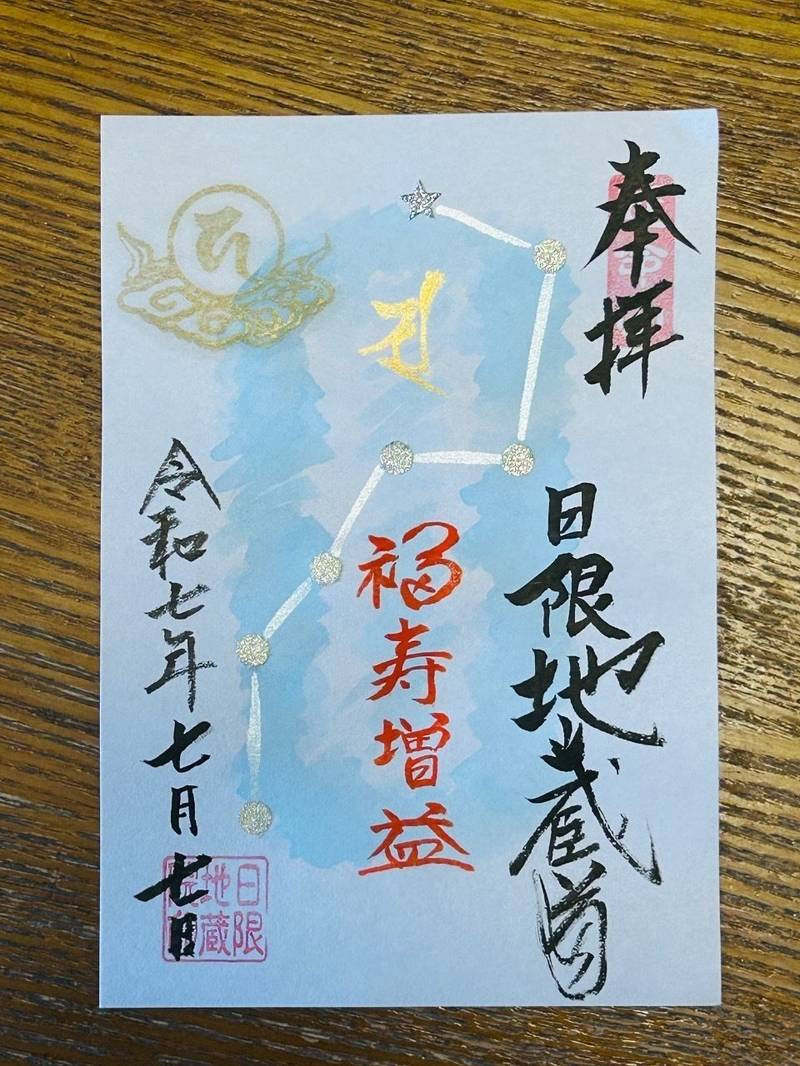 奉拝
日限地蔵尊
福寿増益
令和七年七月七日
日限
地蔵